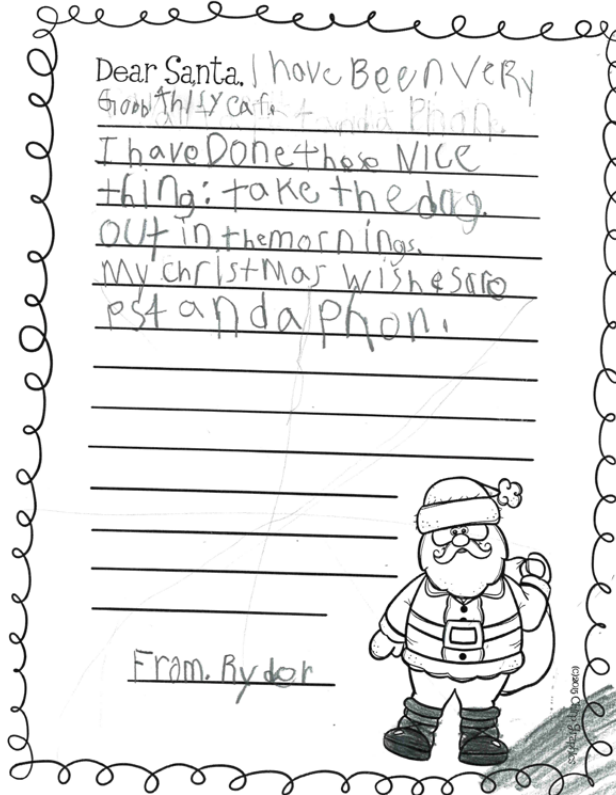 Dear Santa, I have Been VeRy
Good thisy earl.
I have Done these NICE
thing: take the dog.
OUt in the mornings.
My christMas wishes are
PS4 and a phon.
Fram. Rydor